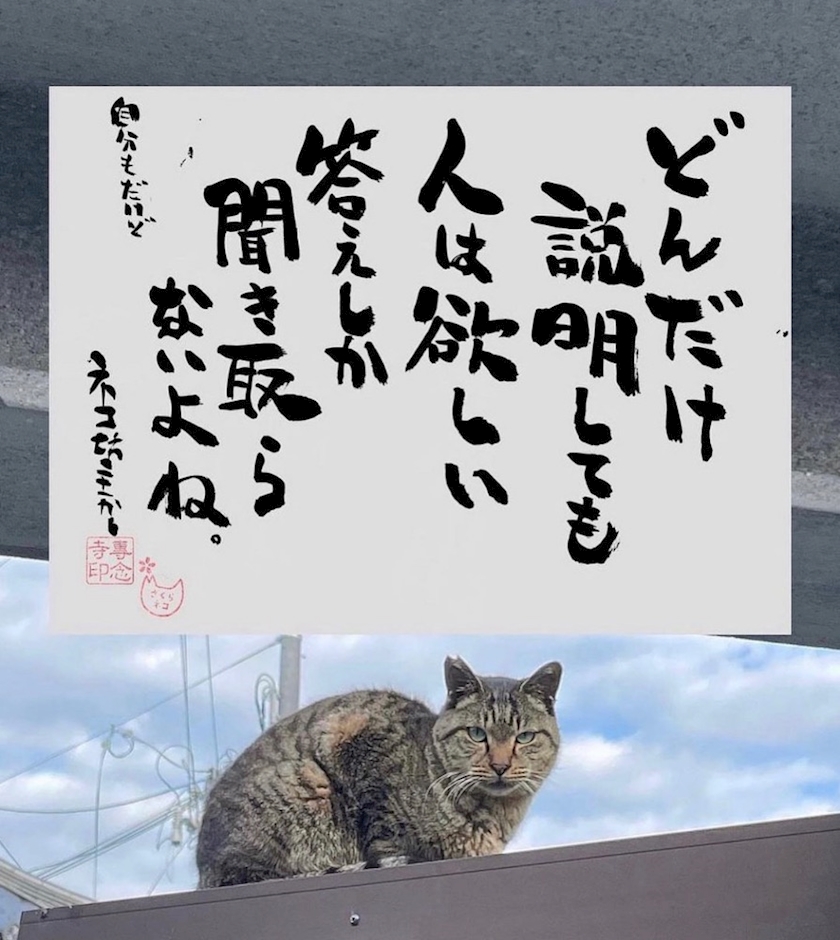 どんだけ
説明しても
人は欲しい
答えしか
聞き取ら
ないよね。
自分もだけど
ネコ坊主かし
專念
寺印
さくら
ネコ